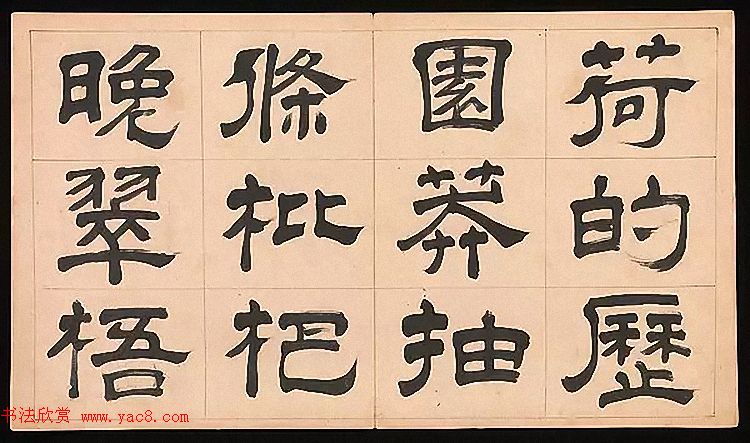 荷的歷
園莽抽
條枇杷
晚翠梧
书法欣赏 www.yac8.com